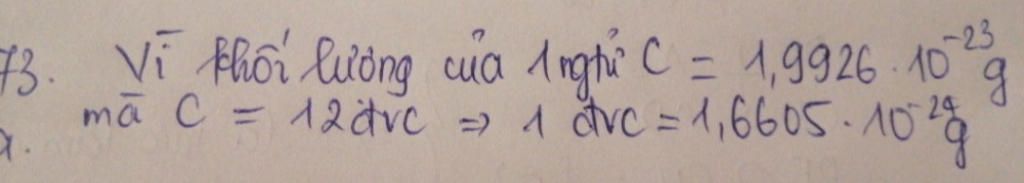 73. Vì khối lượng của 1 nghtử C = 1,9926 . 10⁻²³ g
mà C = 12 đvc => 1 đvc = 1,6605 . 10⁻²⁴ g